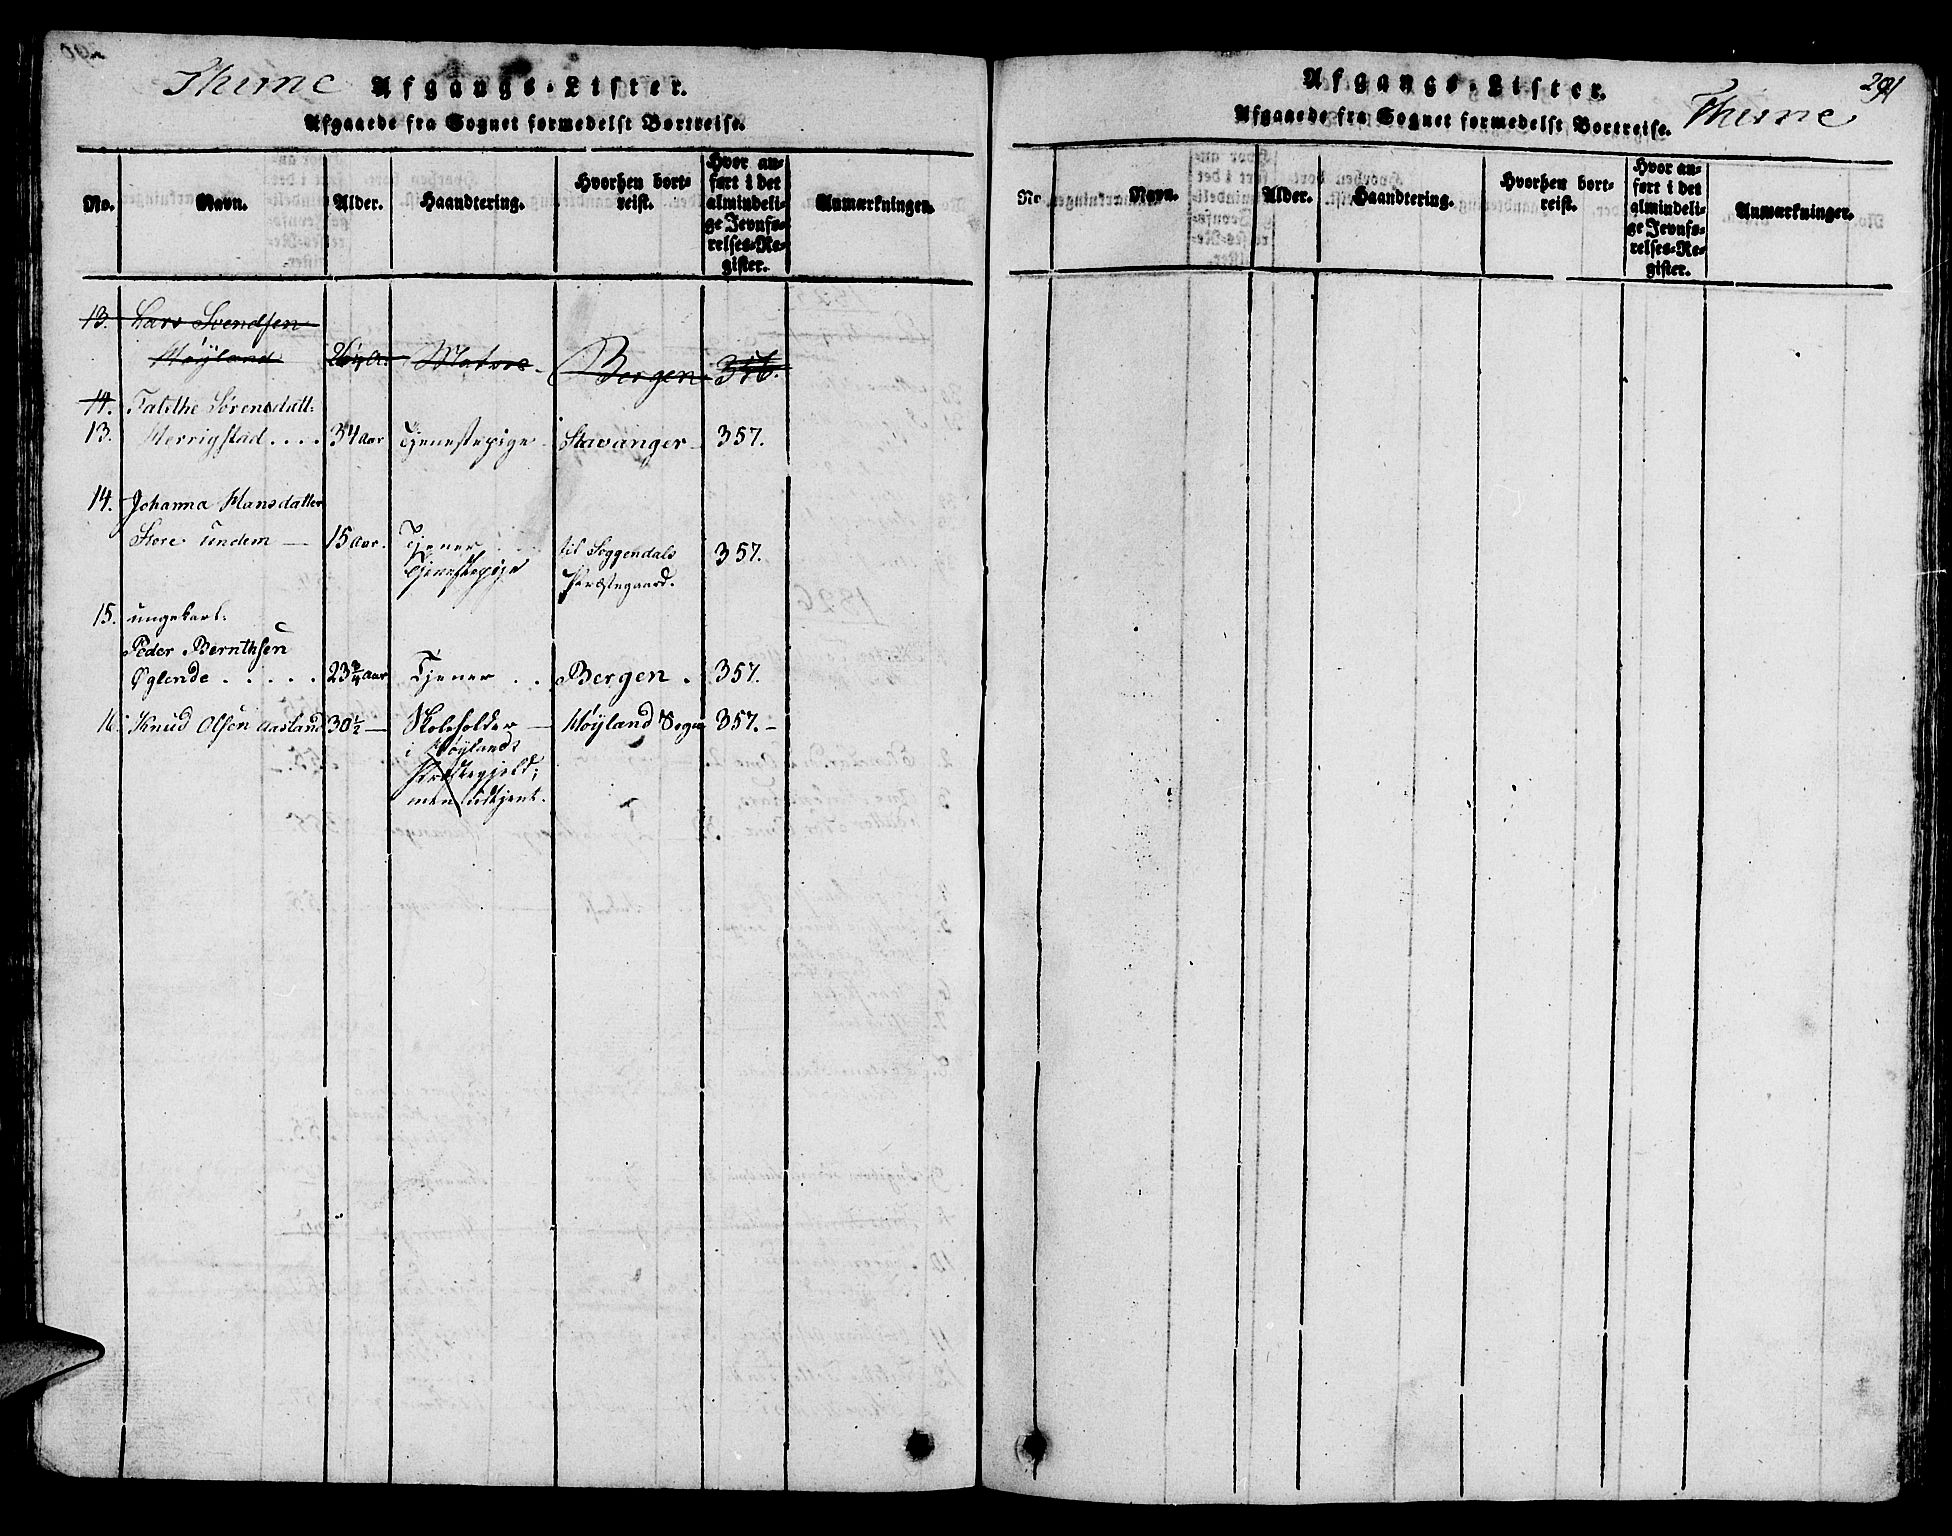 Thime
Afgangs-Lister.
Afgaaede fra Sognet formedelst Bortreise.
No. Navn. Alder. Haandtering. Hvorhen bortreist. Hvor anført i det almindelige Jevnførelses-Register. Anmærkninger.
13. Lars Svendsen
Høyland 26 Matros Bergen 356.
14. Tabithe Sørensdatt:
13. Herrigstad .... 34 aar Tjenestepige Stavanger 357.
14. Johanna Hansdatter
Store Undem — 15 aar. Tjener til Soggendals 357.
Tjenestepige Præstegaard.
15. ungekarl.
Peder Bernthsen
Øglende ..... 23 3/4 aar Tjener .. Bergen . 357.
16. Knud Olsen Aasland 30 1/2 — Skoleholder — Høyland Sogn 357. -
i Høylands
Præstegjeld;
men udtjent.
291
Afgangs-Lister.
Afgaaede fra Sognet formedelst Bortreise.
Thime
No Navn. Alder. Haandtering. Hvorhen bortreist. Hvor anført i det almindelige Jevnførelses-Register. Anmærkninger.